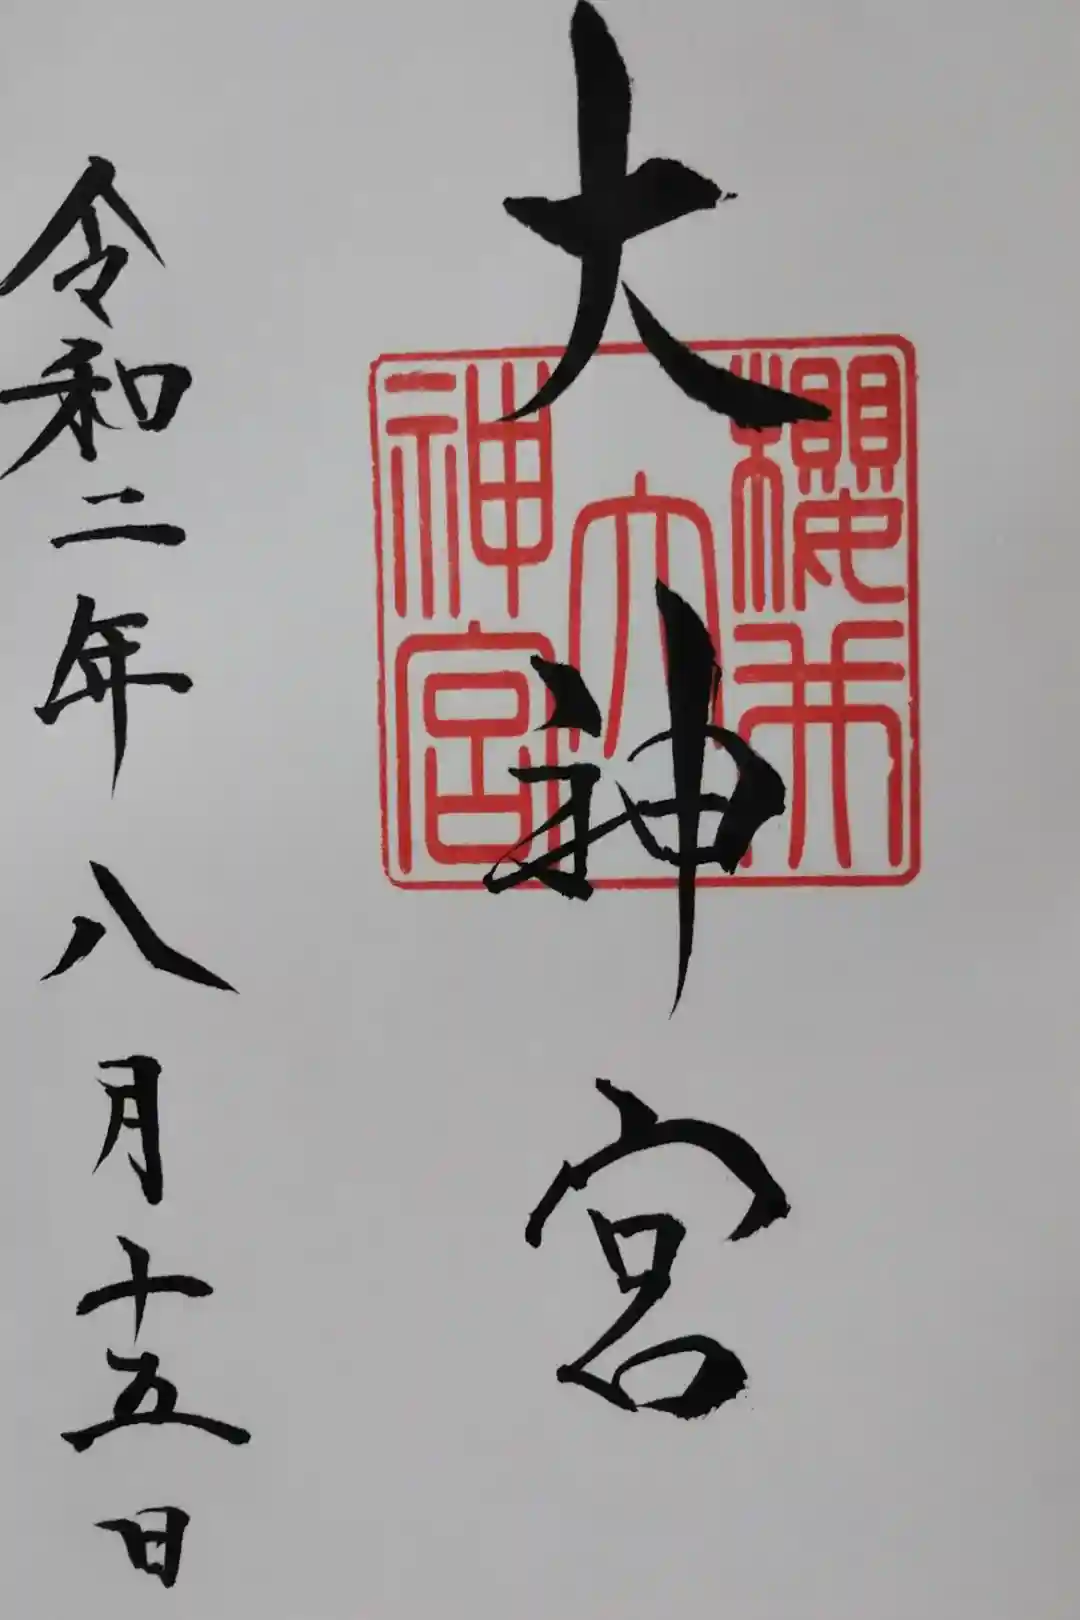 大神宮
櫻井
大
神宮
令和二年八月十五日